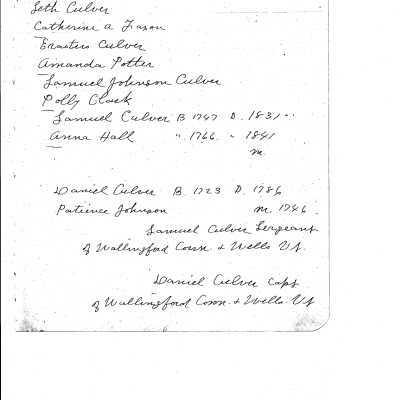 Seth Culver
Catherine A Eason
Erastus Culver
Amanda Potter
Samuel Johnson Culver
Polly Clark
Samuel Culver B 1747 D. 1831
Anna Hall " 1766 " 1841
m.
Daniel Culver B. 1723 D. 1786
Patience Johnson m. 1746.
Samuel Culver Sergeant
of Wallingford Conn. & Wells Vt.
Daniel Culver Capt
of Wallingford Conn. & Wells. Vt